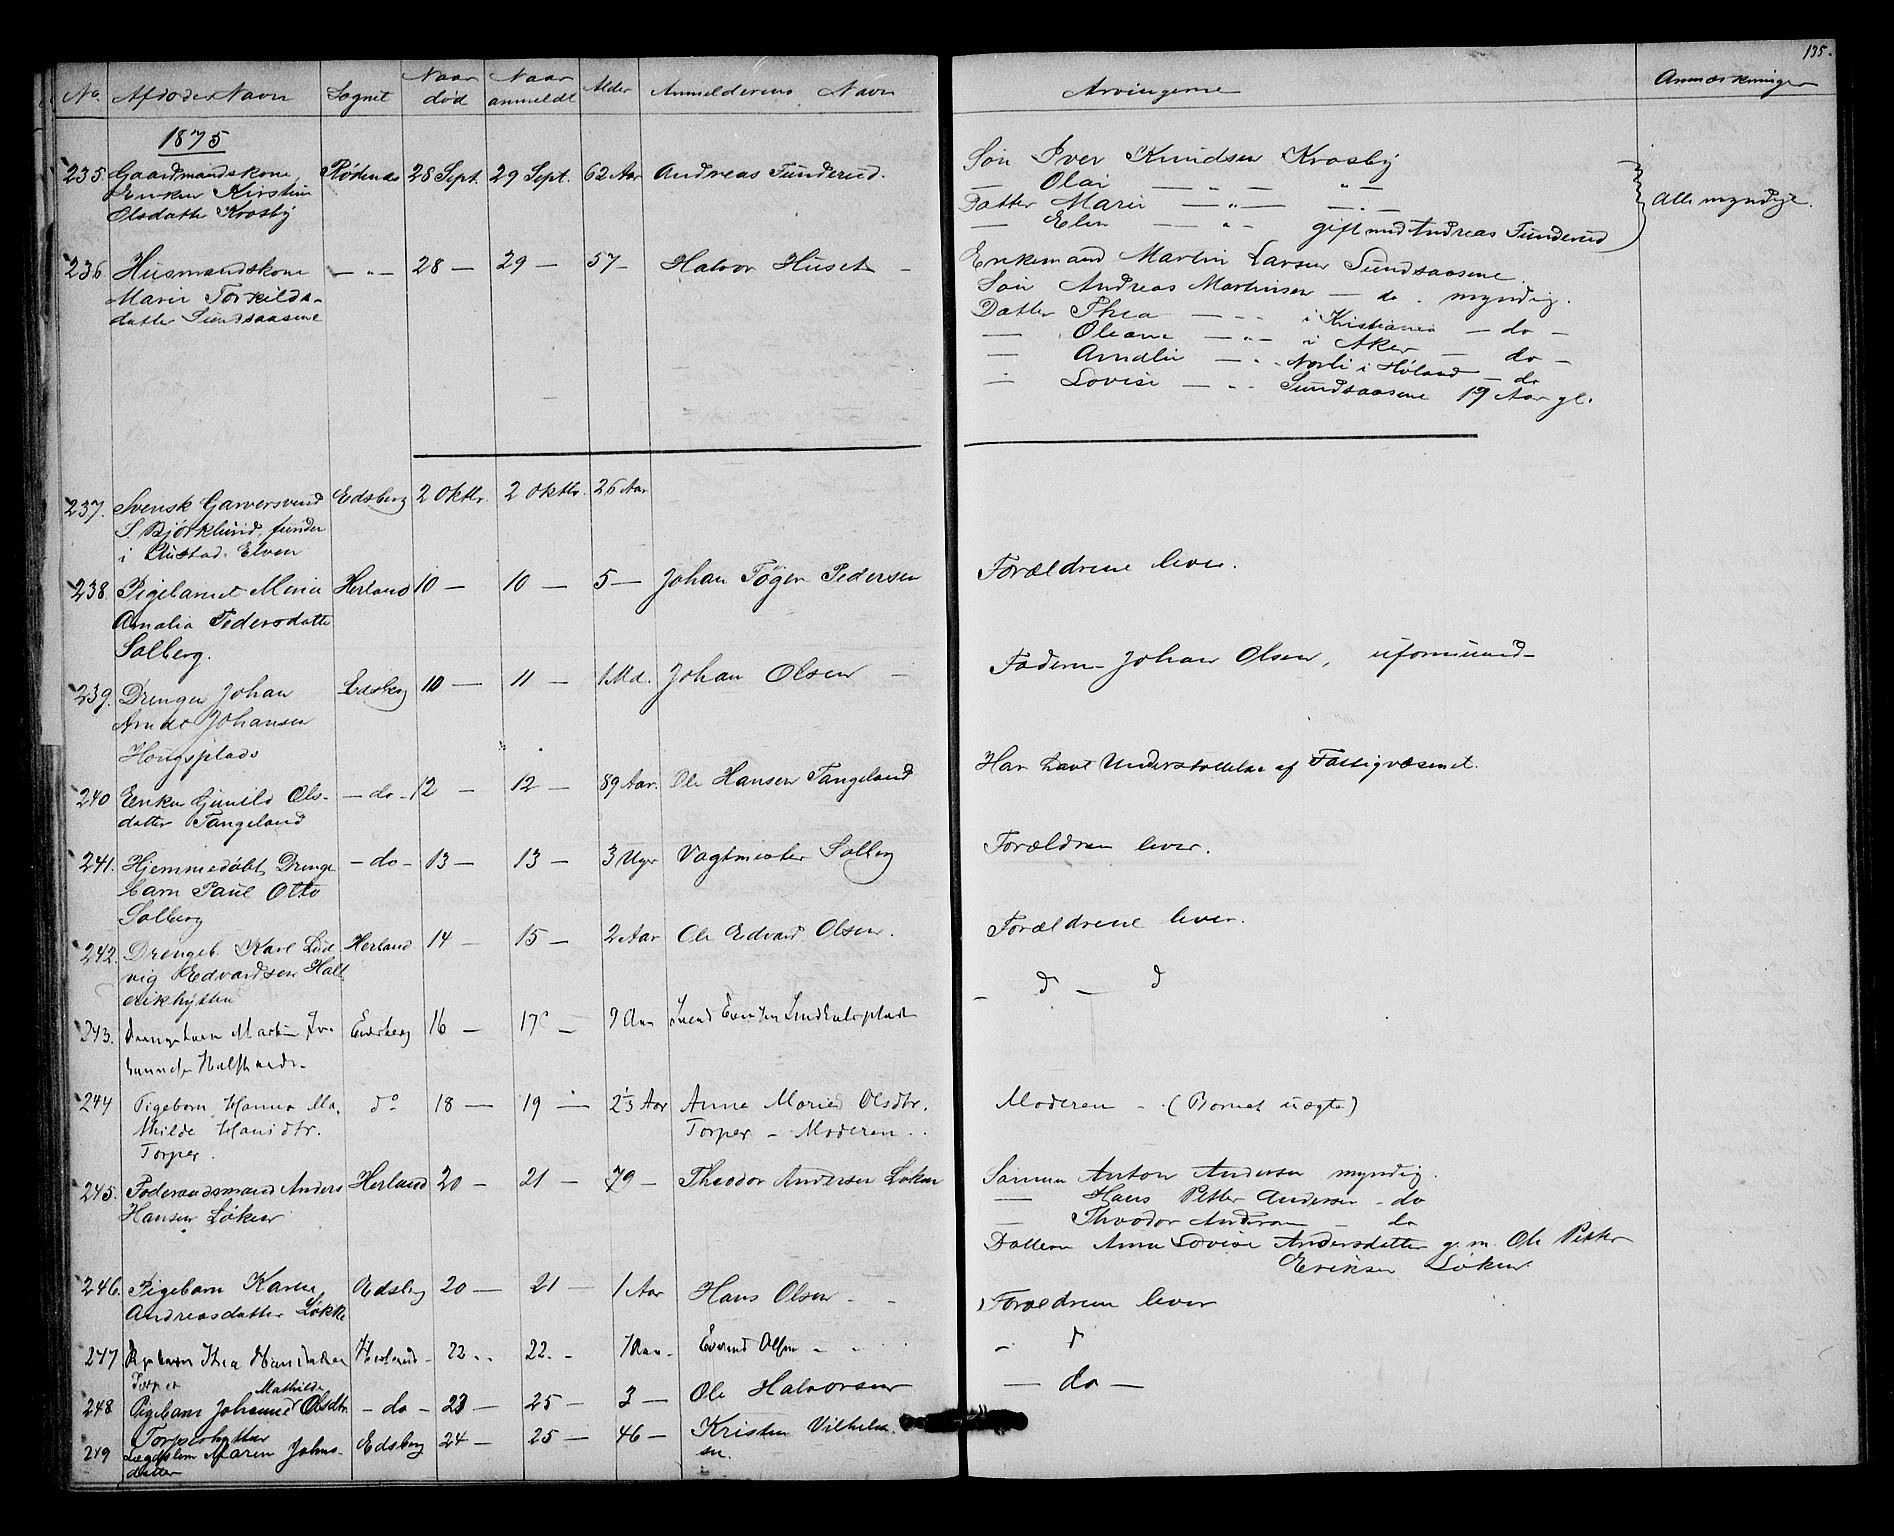 135.
No. Afdødes Navn Sognet Naar død Naar anmeldt Alder Anmelderens Navn Arvingerne Anmærkninger
1875
235. Gaardmandskone, Rødenæs 28 Sept. 29 Sept. 62 Aar Andreas Tunderud. Søn Iver Knudsen Krosby
Enken Kirstine — Olai — „ — „ — Alle myndige.
Olsdatter Krosby Datter Marie — „ — — „ —
— Elen — „ — gift med Andreas Tunderud
236. Husmandskone — „ — 28 — 29 — 57 — Halvor Huset — Enkemand Martin Larsen Sundsaasene
Marie Torkilds- Søn Andreas Martinsen — do. myndig.
datter Sundsaasene Datter Thea — — i Kristiania — do —
— Oleane — „ — i Aker — do —
— Amalie — „ Norli i Høland — do
— Lovise — „ Sundsaasene 19 Aar gl.
237. Svensk Garversvend Edsberg 2 Oktbr. 2 Oktbr. 26 Aar
S. Björklund, funden
i Elven
238. Pigebarnet Herland 10 — 10 — 5 — Johan Pedersen Forældrene lever.
Amalia Pedersdatter
Solberg.
239. Drengen Johan Edsberg 10 — 11 — 1 Md. Johan Olsen — Faderen Johan Olsen, uformuend-
Arndt Johansen
Hougsplads
240 Enken Gunild Ols- — do — 12 — 12 — 89 Aar. Ole Hansen Tangeland Har havt Understøttelse af Fattigvæsenet.
datter Tangeland
241. Hjemmedøbt Drenge — do — 13 — 13 — 3 Uger Vagtmester Solberg Forældrene lever.
barn Paul Otto
Solberg
242. Drengeb. Karl Lud Herland 14 — 15 — 2 Aar Ole Edvard Olsen. Forældrene lever.
vig Edvardsen
243. Drengebarn Martin 16 — 17 — 9 Aar — d — d
244 Pigebarn Hanna Ma- do 18 — 19 — 2⅓ Aar Anne Marie Olsdtr. Moderen — (Barnet uægte)
thilde Hansdtr. Torper — Moderen.
Torper.
245. Føderaadsmand Anders Herland 20 — 21 — 79 — Theodor Andersen Løken Sønnen Anton Andersen myndig.
Hansen Løken — Hans Petter Andersen — do
— Theodor Andersen — do
Datteren Anne Lovise Andersdatter g. m. Ole Petter
Eriksen Løken
246. Pigebarn Karen Edsberg 20 — 21 — 1 Aar Hans Olsen — Forældrene lever
Andreasdatter Løkke
247 Thea Herland 22 — 22 — Olsen — — d
Torper
248 Pigebarn Johanne Mathilde Olsdtr. — do — 23 — 25 — 3 — Ole Halvorsen — do —
Torperhytten
249 Lægdslem Maren Johns- Edsberg 24 — 25 — 46 — Kristen Vilhelm-
datter sen.